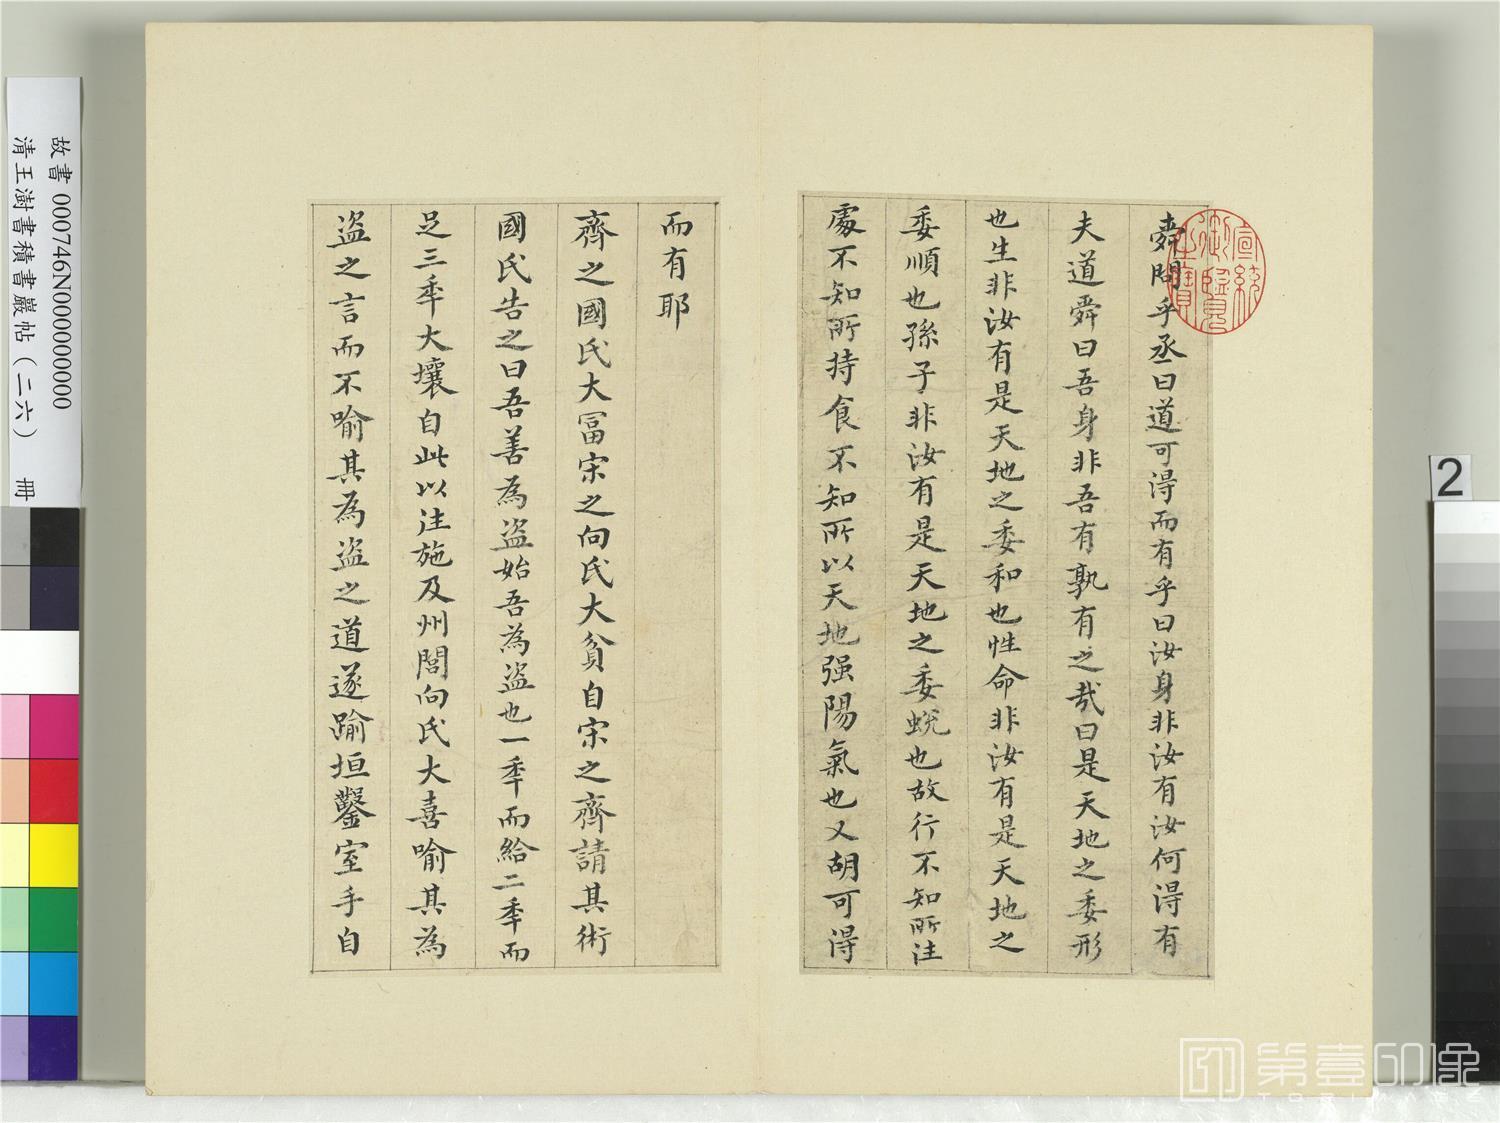 舜問乎丞曰道可得而有乎曰汝身非汝有汝何得有
夫道舜曰吾身非吾有孰有之哉曰是天地之委形
也生非汝有是天地之委和也性命非汝有是天地之
委順也孫子非汝有是天地之委蛻也故行不知所注
處不知所持食不知所以天地强陽氣也又胡可得
而有耶
齊之國氏大冨宋之向氏大貧自宋之齊請其術
國氏告之曰吾善為盜始吾為盜也一秊而給二秊而
足三秊大壤自此以注施及州閭向氏大喜喻其為
盜之言而不喻其為盜之道遂踰垣鑿室手自
宣統御覽之寶
故書 000746N000000000
清王澍書積書巖帖（二六） 冊
2
第壹印像
TOP IMAGE